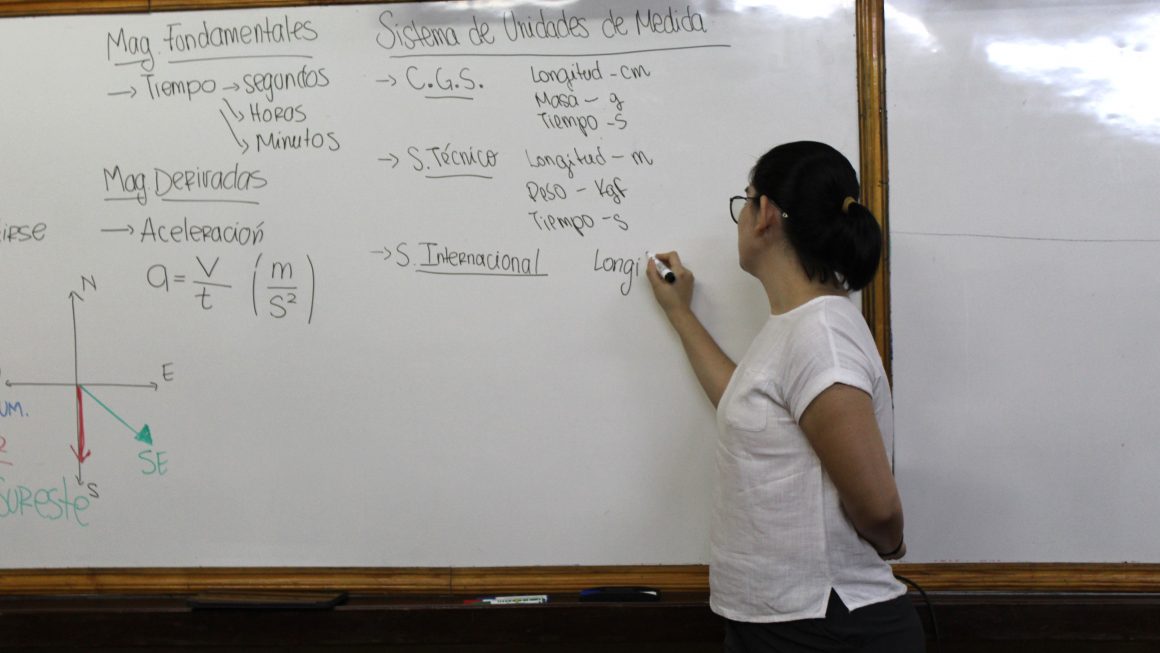 Mag. Fondamentales
→ Tiempo → segundos
↳ Horas
↳ Minutos
Mag. Derivadas
→ Aceleración
a = V/t (m/s²)
N
E
S
SE
Sureste
Sistema de Unidades de Medida
→ C.G.S.
Longitud - cm
Masa - g
Tiempo - s
→ S. Técnico
Longitud - m
Peso - Kgf
Tiempo - s
→ S. Internacional
Longi